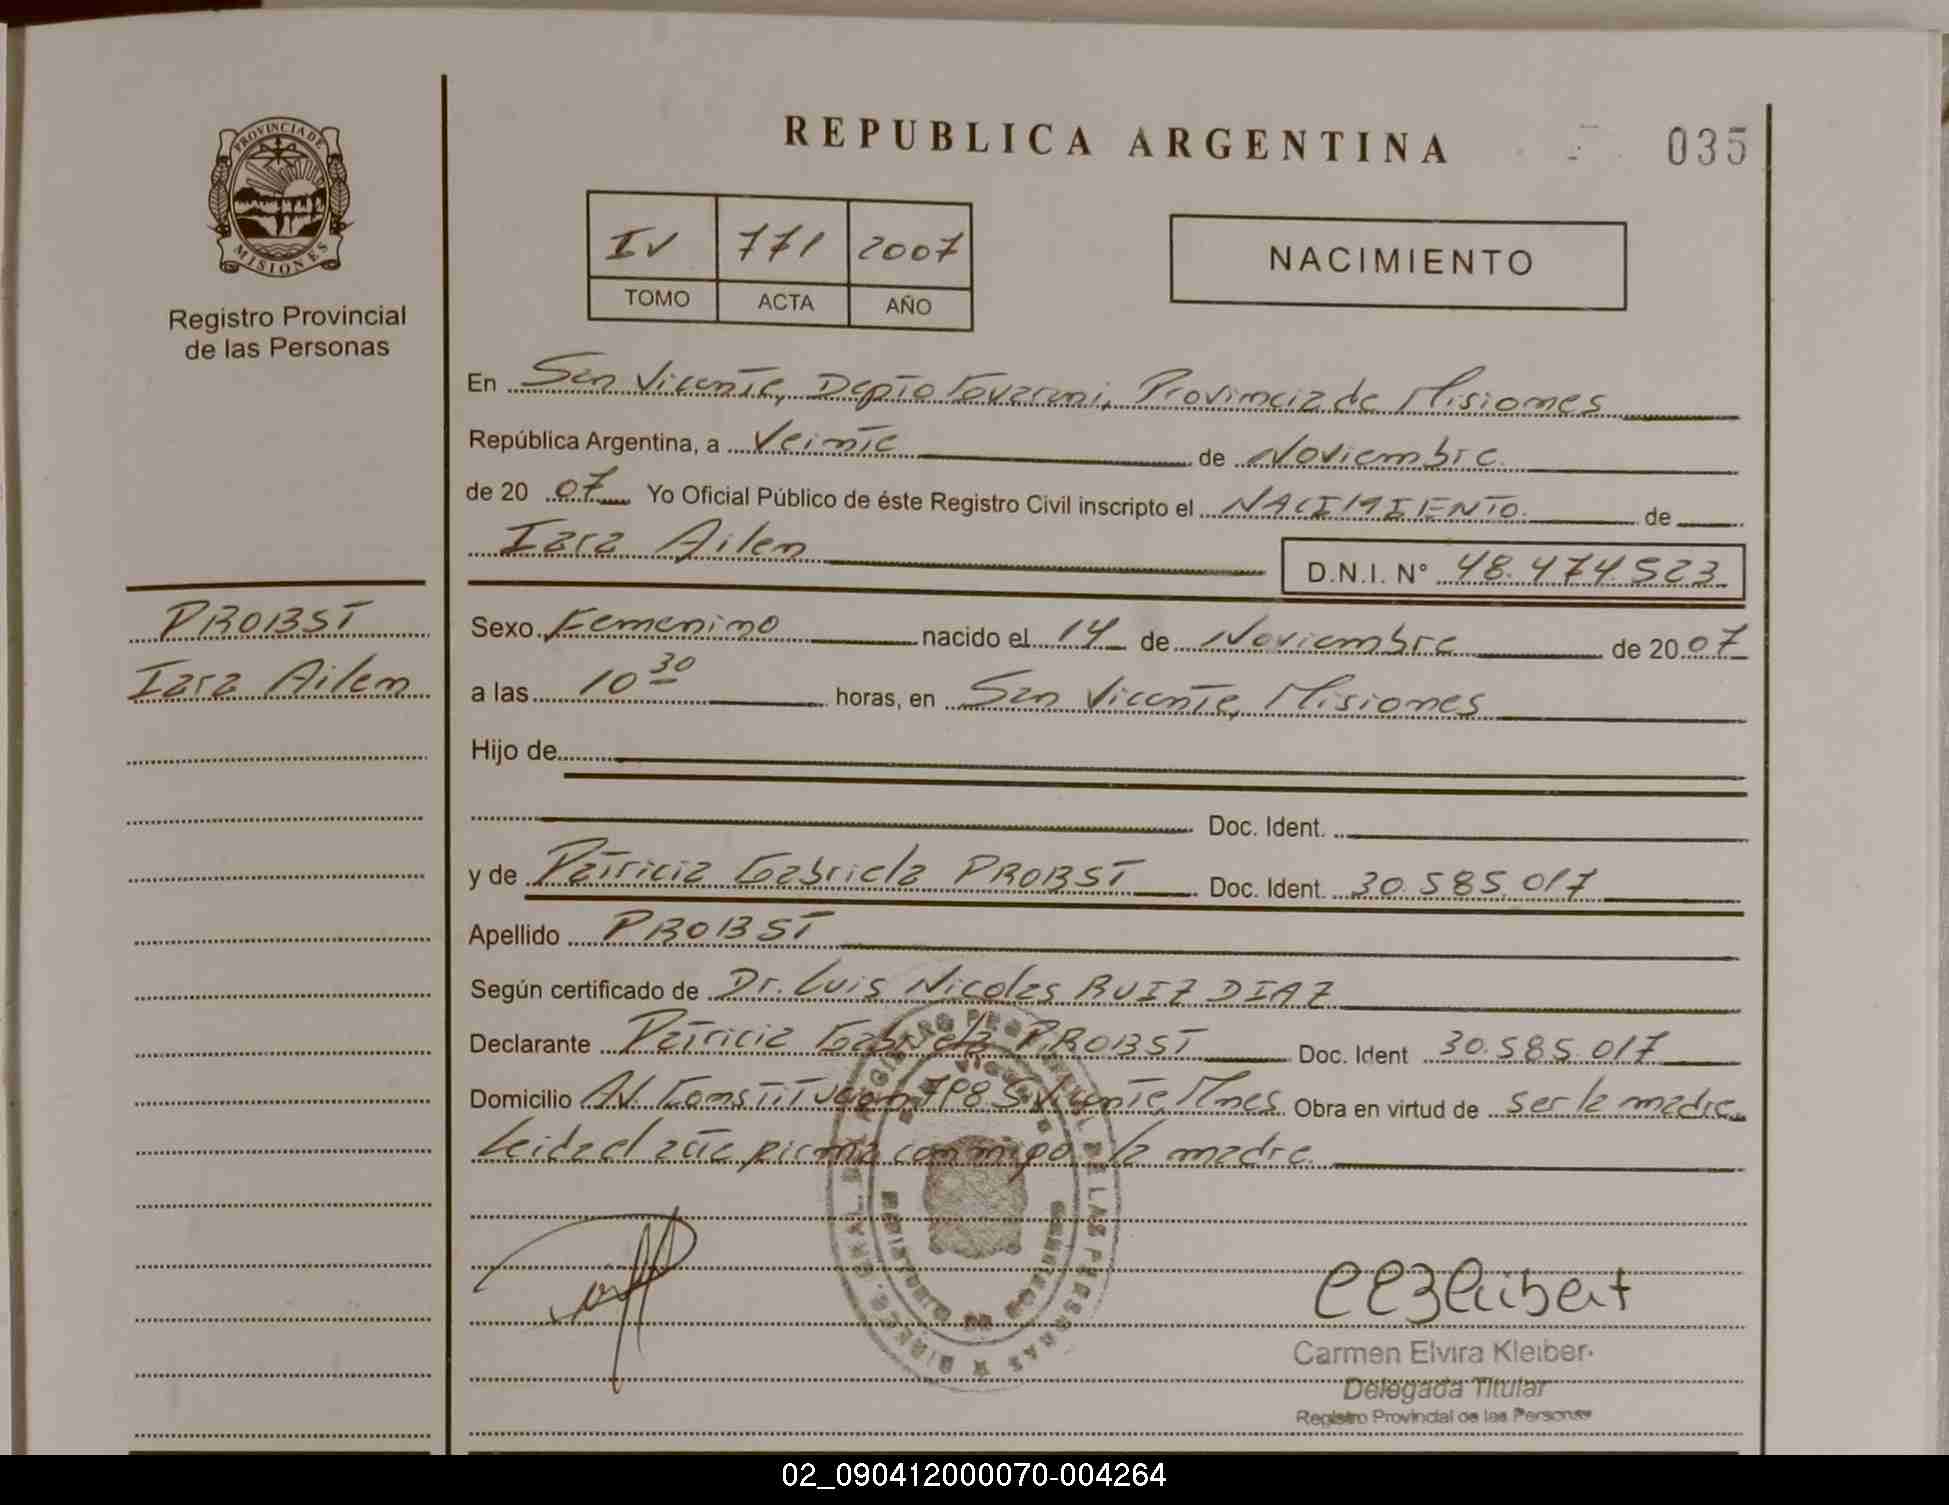 REPUBLICA ARGENTINA
035
PROVINCIA DE
MISIONES
Registro Provincial
de las Personas
IV 771 2007
TOMO ACTA AÑO
NACIMIENTO
En San Vicente, Depto Guarani, Provincia de Misiones
República Argentina, a Veinte de Noviembre
de 2007 Yo Oficial Público de éste Registro Civil inscripto el NACIMIENTO de
Iara Ailen D.N.I. N° 48.474.523
PROBST
Iara Ailen
Sexo Femenino nacido el 14 de Noviembre de 2007
a las 10 30 horas, en San Vicente, Misiones
Hijo de
Doc. Ident.
y de Patricia Gabriela PROBST Doc. Ident. 30.585.017
Apellido PROBST
Según certificado de Dr. Luis Nicolas RUIZ DIAZ
Declarante Patricia Gabriela PROBST Doc. Ident 30.585.017
Domicilio Av. Constitucion 798 S. Vicente, Mnes Obra en virtud de ser la madre
Leida el acta firma conmigo la madre
Carmen Elvira Kleiber
Delegada Titular
Registro Provincial de las Personas
02_090412000070-004264